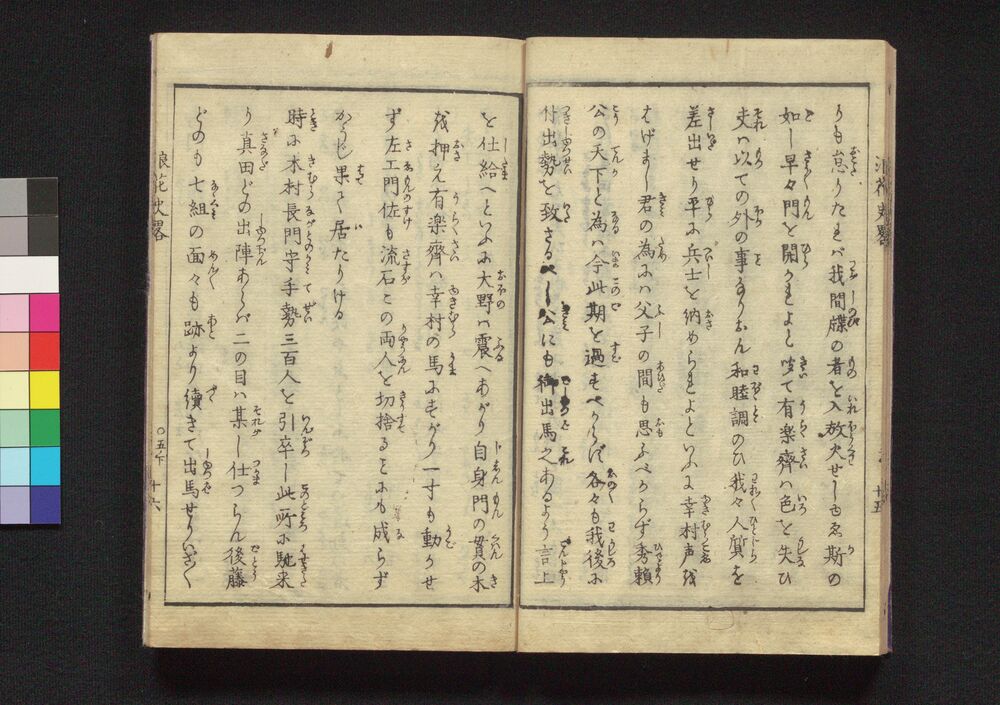 りも怠りたまハバ我間牒の者を入放火せしもゑ斯の
如し早々門を開かれよと呼て有楽齊ハ色を失ひ
夫ハ以ての外の事なりなん和睦調のひ我々人質を
差出せり平に兵士を納められよといふに幸村声を
はげまし君の為にハ父子の間も思ふべからず秀頼
公の天下と為ハ今此期を過すべからず各々も我後に
付出勢を致さるべし公にも御出馬之あるよう言上
を仕給へといふに大野ハ震へあがり自身門の貫の木
を押え有楽齊ハ幸村の馬にすがり一寸も動かせ
ず左エ門佐も流石この両人を切捨ることにも成らず
からし果て居たりける
時に木村長門守手勢三百人を引卒し此所に馳来
り真田どの出陣あらバ二の目ハ某し仕つらん後藤
どのも七組の面々も跡より續きて出馬せりいざ〱
浪花史畧
○五下
十六